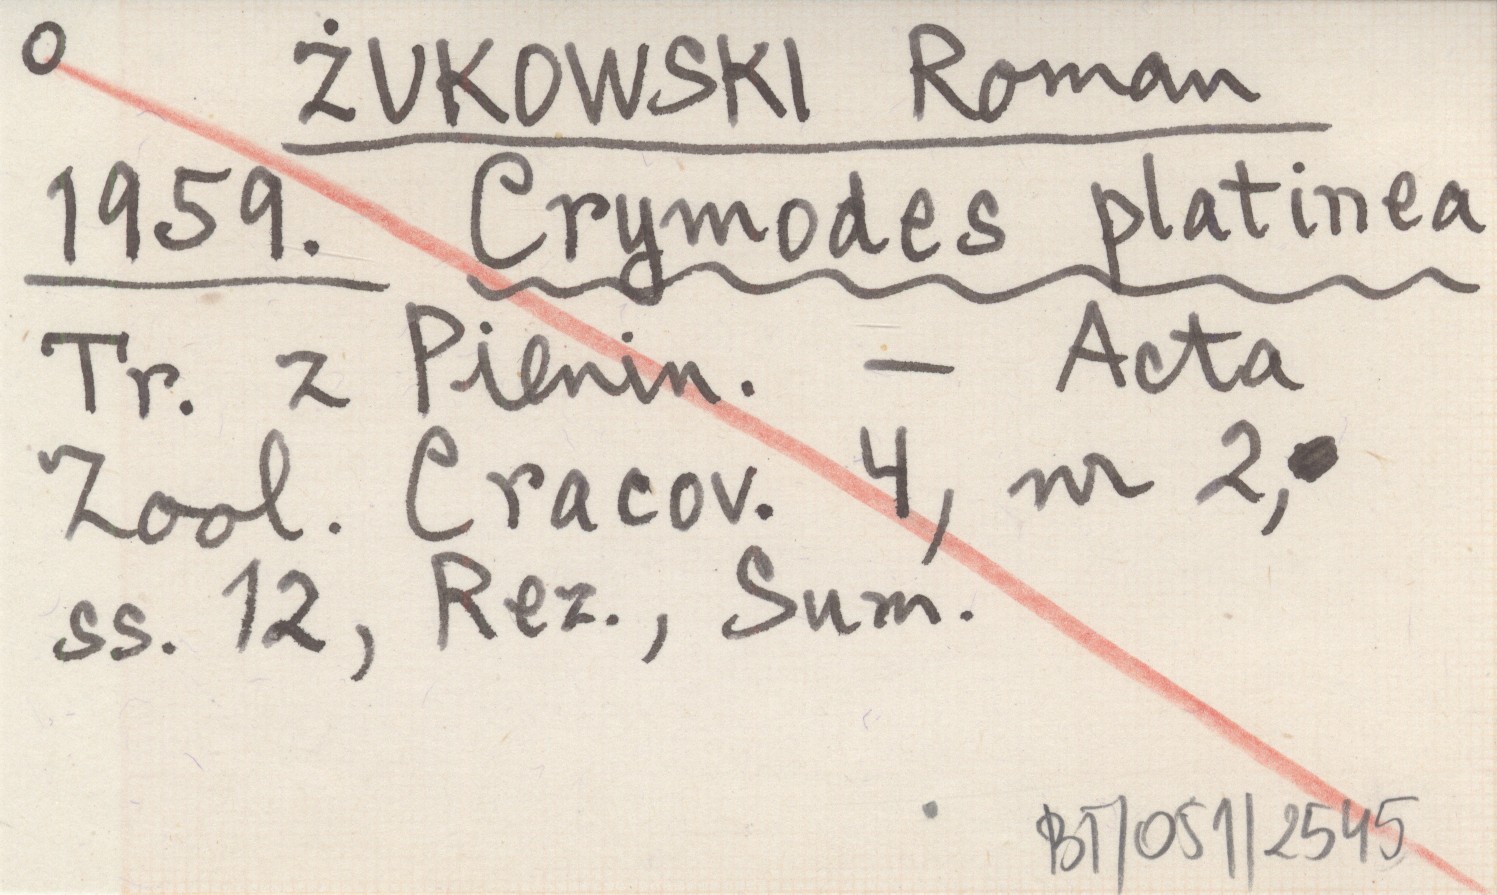 o ŻUKOWSKI Roman
1959. Crymodes platinea
Tr. z Pienin. — Acta
Zool. Cracov. 4, nr 2,
ss. 12, Rez., Sum.
BT/051/2545